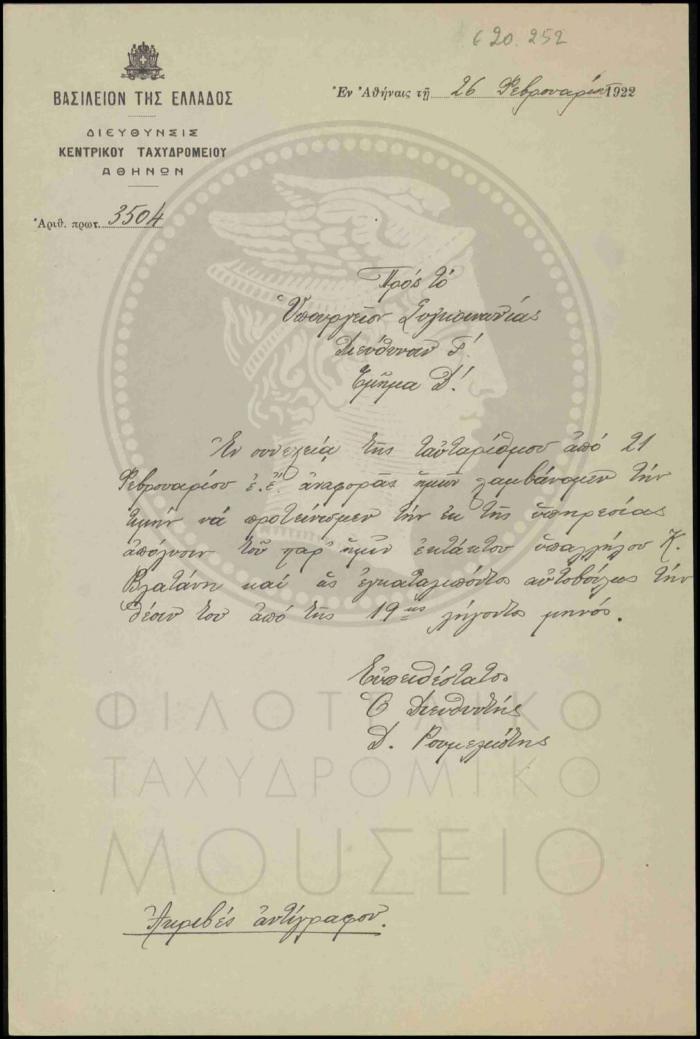 620.252
ΒΑΣΙΛΕΙΟΝ ΤΗΣ ΕΛΛΑΔΟΣ
ΔΙΕΥΘΥΝΣΙΣ
ΚΕΝΤΡΙΚΟΥ ΤΑΧΥΔΡΟΜΕΙΟΥ
ΑΘΗΝΩΝ
Ἐν Ἀθήναις τῇ 26 Φεβρουαρίου 1922
Ἀριθ. πρωτ. 3504
Πρός τό
Ὑπουργεῖον Συγκοινωνίας
Διεύθυνσιν Γ!
Τμῆμα Δ!
Ἐν συνεχείᾳ τῆς ταὐταρίθμου ἀπό 21
Φεβρουαρίου ἐ.ἔ. ἀναφορᾶς ἡμῶν λαμβάνομεν τήν
τιμήν νά προτείνωμεν τήν ἐκ τῆς ὑπηρεσίας
ἀπόλυσιν τοῦ παρ' ἡμῖν ἐκτάκτου ὑπαλλήλου Κ.
Βλατάνη καί ὡς ἐγκαταλιπόντος αὐτοβούλως τήν
θέσιν του ἀπό τῆς 19ης λήγοντος μηνός.
Εὐπειθέστατος
Ὁ Διευθυντής
Δ. Ρουμελιώτης
ΦΙΛΟΤΕΛΙΚΟ
ΤΑΧΥΔΡΟΜΙΚΟ
ΜΟΥΣΕΙΟ
Ἀκριβές ἀντίγραφον.